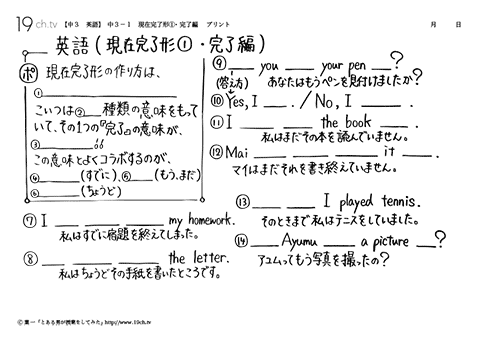 19ch.tv 【中3 英語】 中3-1 現在完了形①・完了編 プリント 月 日
英語(現在完了形①・完了編)
ポ 現在完了形の作り方は、
①
こいつは②__種類の意味をもって
いて、その1つの『完了』の意味が、
③
この意味とよくコラボするのが、
④____(すでに)、⑤____(もう、まだ)
⑥____(ちょうど)
⑦ I ____ ____ ____ my homework.
私はすでに宿題を終えてしまった。
⑧ __ ____ ____ ____ the letter.
私はちょうどその手紙を書いたところです。
⑨ ____ you ____ your pen __?
(答え方) あなたはもうペンを見付けましたか?
⑩ Yes, I ____. / No, I ____.
⑪ I ____ ____ the book ____.
私はまだその本を読んでいません。
⑫ Mai ____ ____ ____ it ____.
マイはまだそれを書き終えていません。
⑬ ____ ____ I played tennis.
そのときまで私はテニスをしていました。
⑭ ____ Ayumu ____ a picture __?
アユムってもう写真を撮ったの?
© 葉一「とある男が授業をしてみた」http://www.19ch.tv